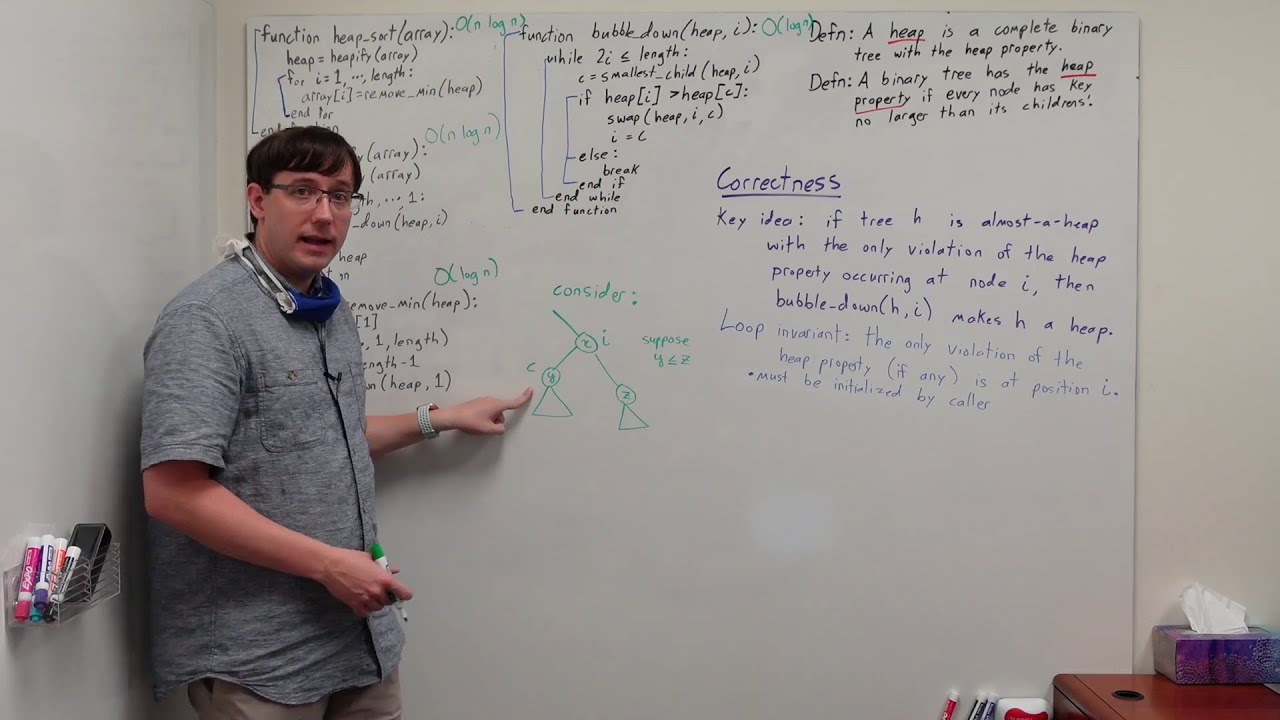 function heap_sort(array): O(n log n)
heap = heapify(array)
for i=1, ..., length:
array[i] = remove_min(heap)
end for
end function
O(n log n)
(array):
(array)
, ..., 1:
_down(heap, i)
heap
O(log n)
remove_min(heap):
[1]
, 1, length)
length-1
(heap, 1)
function bubble_down(heap, i): O(log n)
while 2i ≤ length:
c = smallest_child(heap, i)
if heap[i] > heap[c]:
swap(heap, i, c)
i = c
else:
break
end if
end while
end function
consider:
x i
suppose
y ≤ z
c y
z
Defn: A heap is a complete binary
tree with the heap property.
Defn: A binary tree has the heap
property if every node has key
no larger than its childrens'.
Correctness
Key idea: if tree h is almost-a-heap
with the only violation of the heap
property occurring at node i, then
bubble-down(h, i) makes h a heap.
Loop invariant: the only violation of the
heap property (if any) is at position i.
• must be initialized by caller
EXPO